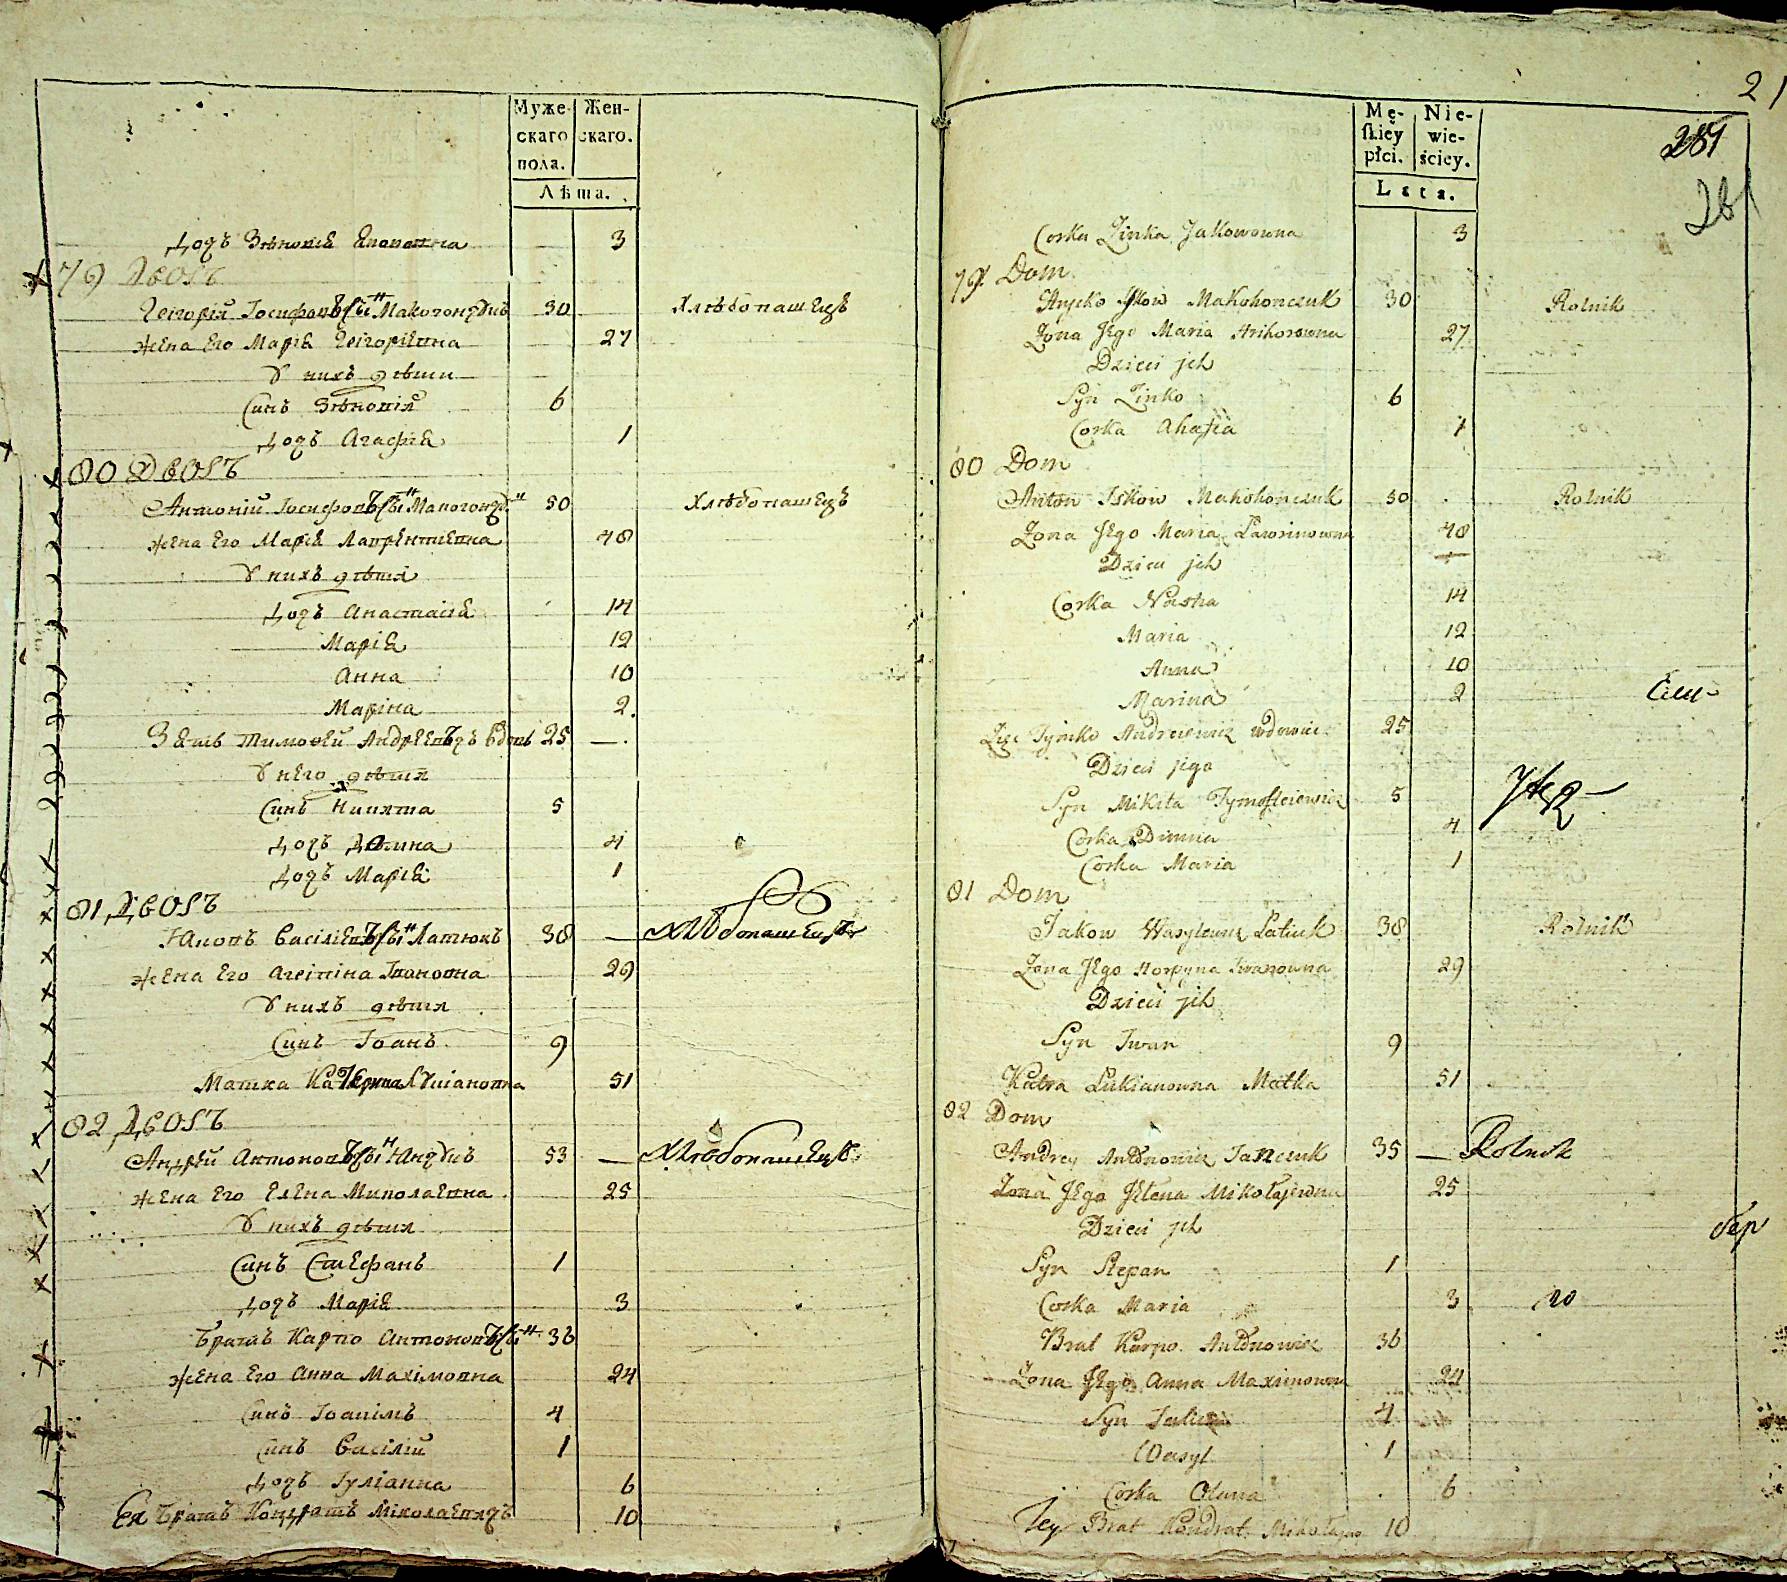 Муже- Жен-
скаго скаго.
пола.
Лѣта.
Доч Зѣновія Якововна 3
79 Дворъ
Григорій Іосифовъ Сынъ Макогончукъ 30 Хлѣбопашецъ
Жена Его Марія Григоріевна 27
У нихъ дѣти
Синъ Зѣновій 6
Дочъ Агафія 1
80 Дворъ
Антоній Іосифовъ Сынъ Макогонч 50 Хлѣбопашецъ
Жена Его Марія Лаврентіевна 48
У нихъ дѣтя
Дочъ Анастасія 14
Марія 12
Анна 10
Маріна 2
Зять Тимофей Андреевичъ Вдовъ 25 —
У него дѣтя
Синъ Никита 5
Дочъ Домна 4
Дочъ Марія 1
81 Дворъ
Яковъ Василіевъ Сынъ Латюкъ 38 — Хлѣбопашецъ
Жена Его Агріпіна Івановна 29
У нихъ дѣтя
Синъ Іоанъ 9
Матка Катерина Лукіановна 51
82 Дворъ
Андрей Антоновъ Сынъ Янчукъ 53 — Хлѣбопашецъ
Жена Его Елена Миколаевна 25
У нихъ дѣтя
Синъ Стефанъ 1
Дочъ Марія 3
Братъ Карпо Антоновъ Сынъ 36
Жена Его Анна Махімовна 24
Синъ Іоакімъ 4
Синъ Василій 1
Дочъ Іуліанна 6
Ея Братъ Кондратъ Міколаевичъ 10
21
Mę- Nie-
skiey wie-
płci. ściey.
Lata.
281
281
Corka Zinka Jakowowna 3
79 Dom
Hrycko Jśkow Makohonczuk 30 Rolnik
Zona Jego Maria Hrihorowna 27
Dzieci jch
Syn Zinko 6
Corka Ahafia 1
80 Dom
Anton Iśkow Makohonczuk 50 Rolnik
Zona Jego Maria Lawrinowna 48
Dzieci jch
Corka Nastia 14
Maria 12
Anna 10
Marina 2
Zięć Tymko Andreiewicz wdowiec 25
Dzieci jego
Syn Mikita Tymofieiewicz 5
Corka Dimnia 4
Corka Maria 1
81 Dom
Jakow Wasylewicz Latiuk 38 Rolnik
Zona Jego Horpyna Iwanowna 29
Dzieci jch
Syn Iwan 9
Katra Lukianowna Matka 51
82 Dom
Andrey Antonowicz Janczuk 35 — Rolnik
Zona Jego Jelena Mikołajewna 25
Dzieci jch
Syn Stepan 1
Corka Maria 3
Brat Karpo Antonowicz 36
Zona Jego Anna Maximowna 24
Syn Jakim 4
Wasyl 1
Corka Olana 6
Jey Brat Kondrat Mikołajow 10